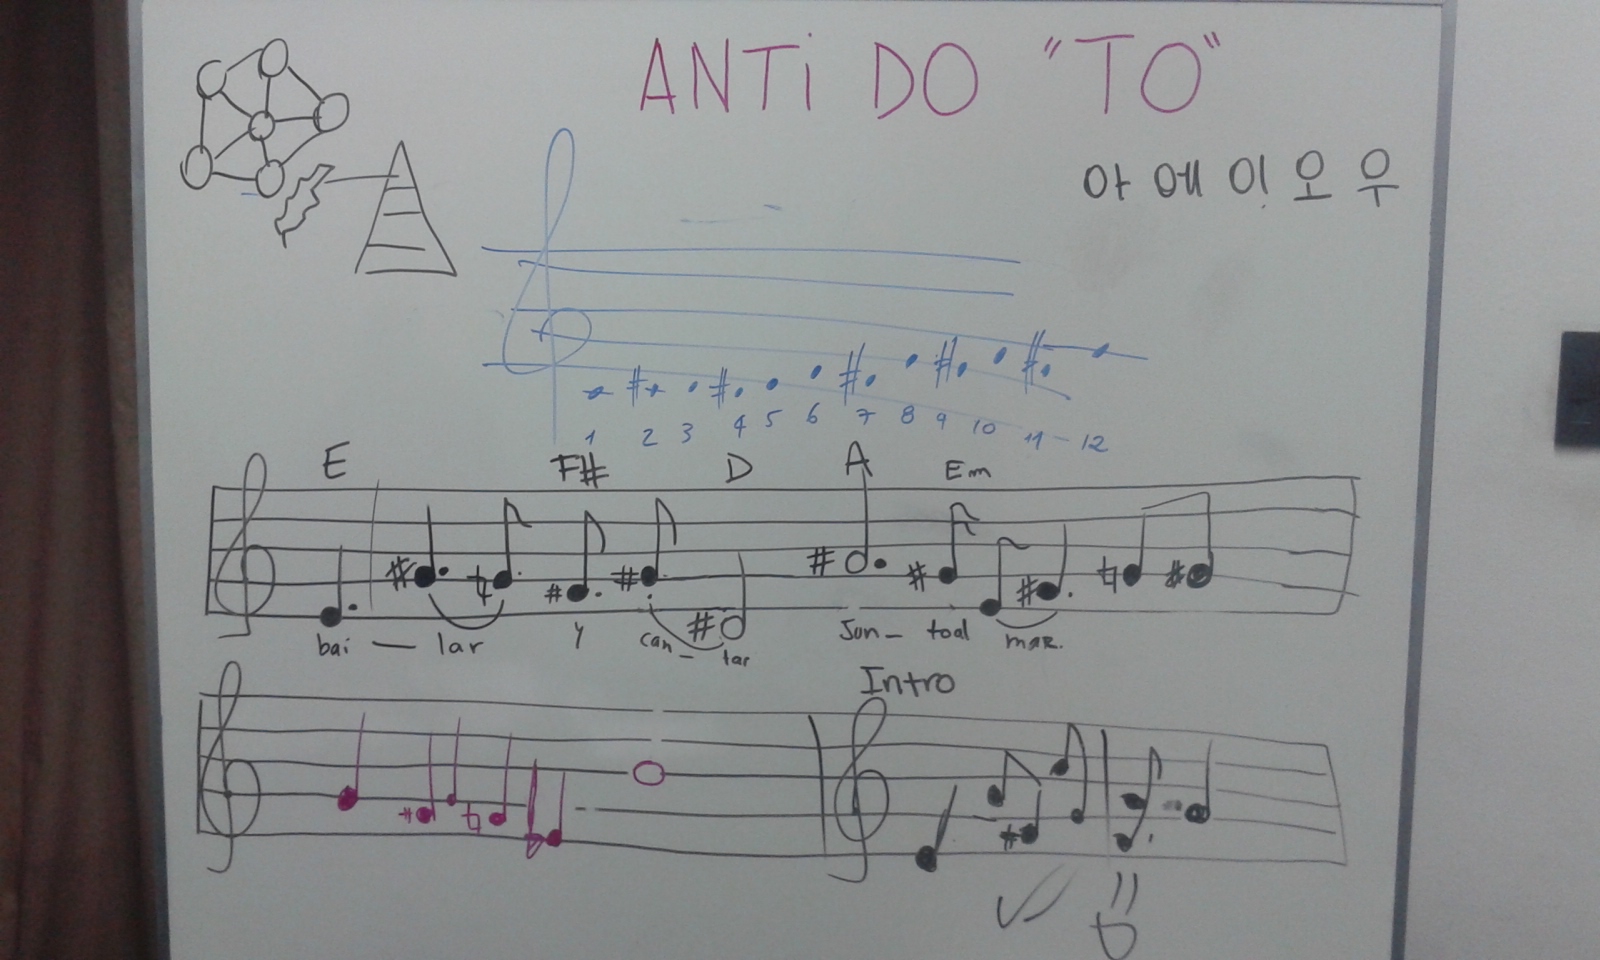 ANTi DO "TO"
아 애 이 오 우
1 2 3 4 5 6 7 8 9 10 11 - 12
E F# D A Em
bai — lar y can - tar Jun - toal mar.
Intro